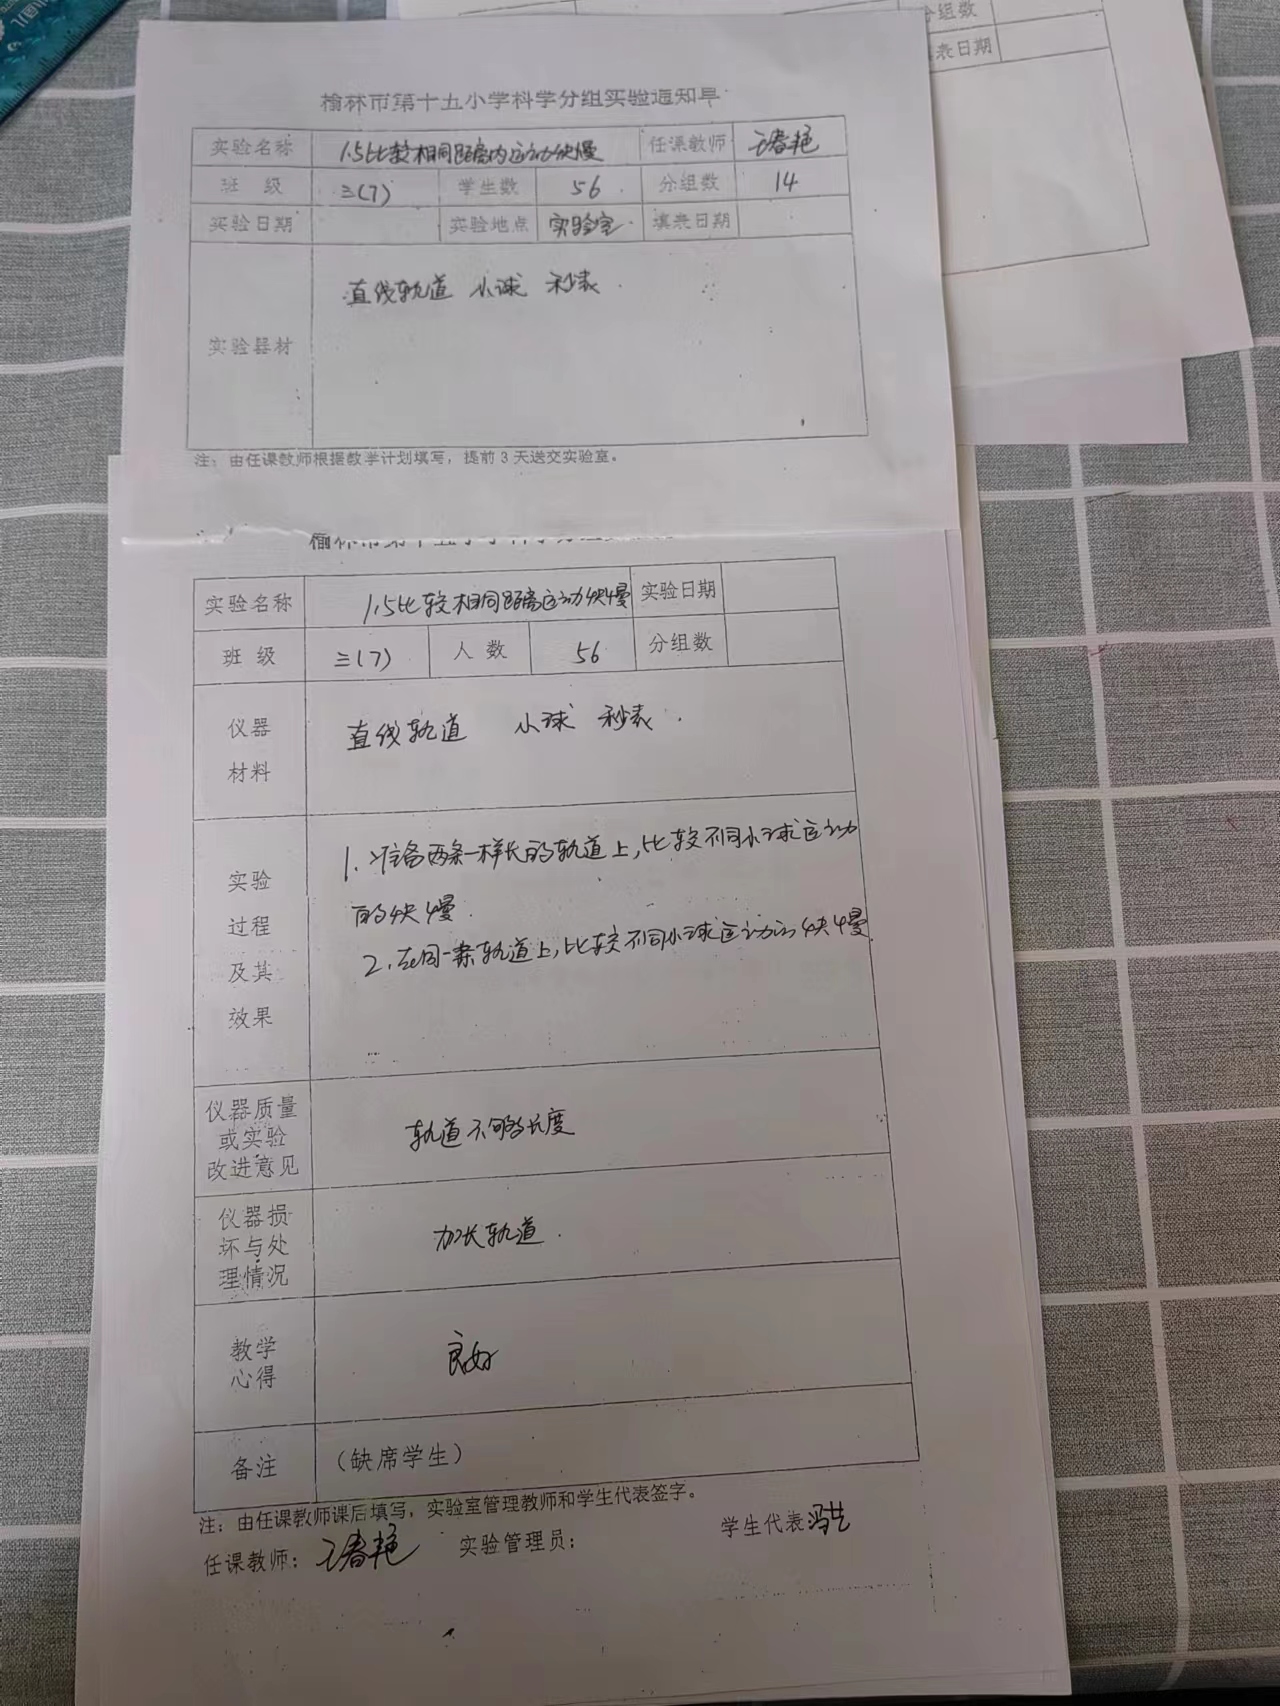 分组数
表日期
榆林市第十五小学科学分组实验通知单
实验名称 1.5比较相同距离内运动快慢 任课教师 王春艳
班 级 三(7) 学生数 56 分组数 14
实验日期 实验地点 实验室 填表日期
实验器材 直线轨道 小球 秒表
注：由任课教师根据教学计划填写，提前3天送交实验室。
实验名称 1.5比较相同距离运动快慢 实验日期
班 级 三(7) 人 数 56 分组数
仪器
材料
直线轨道 小球 秒表
实验
过程
及其
效果
1.准备两条一样长的轨道上，比较不同小球运动
的快慢.
2.在同一条轨道上，比较不同小球运动的快慢
仪器质量
或实验
改进意见
轨道不够长度
仪器损
坏与处
理情况
加长轨道.
教学
心得
良好
备注 （缺席学生）
注：由任课教师课后填写，实验室管理教师和学生代表签字。
任课教师：王春艳 实验管理员： 学生代表